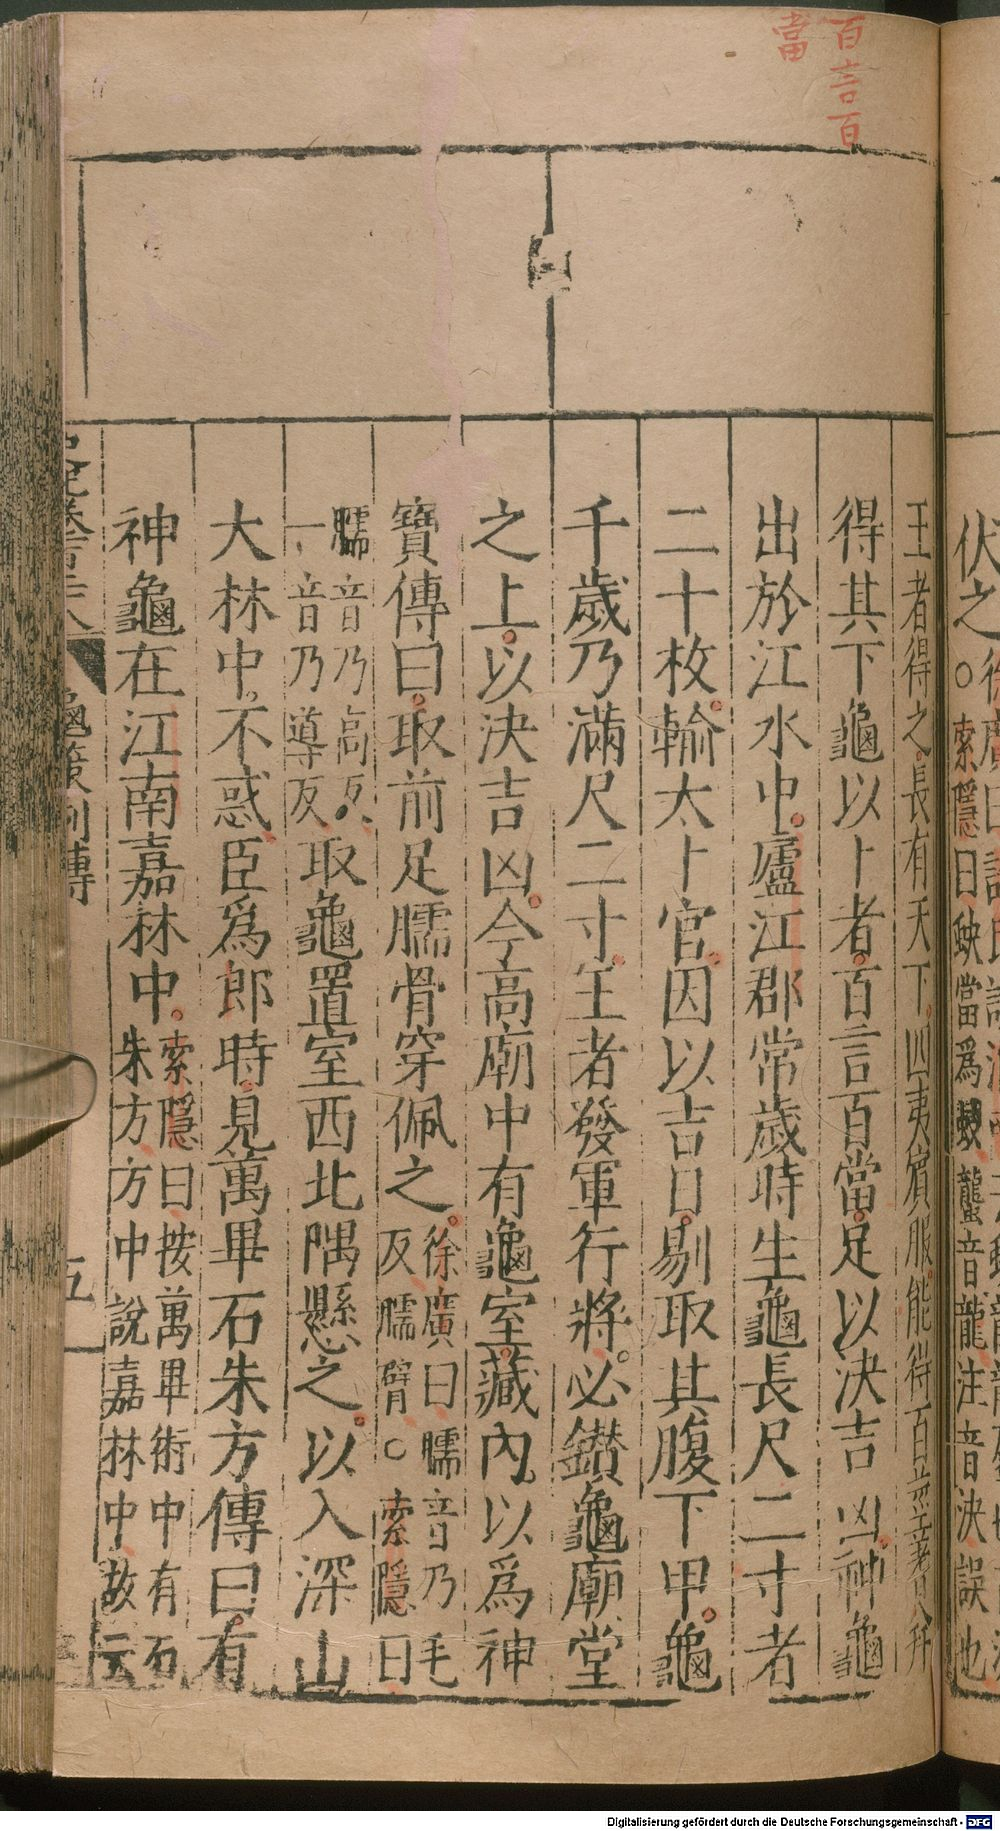 百言百
當
伏之
○索隱曰蚗當爲
音龍注音決誤也
王者得之長有天下四夷賓服能得百莖蓍
得其下龜以卜者百言百當足以決吉凶神龜
出於江水中廬江郡常歲時生龜長尺二寸者
二十枚輸太卜官因以吉日剔取其腹下甲龜
千歲乃滿尺二寸王者發軍行將必鑽龜廟堂
之上以決吉凶今高廟中有龜室藏內以爲神
寶傳曰取前足臑骨穿佩之
徐廣曰臑音乃毛
反臑臂○索隱曰
臑音乃高反
一音乃導反
取龜置室西北隅懸之以入深山
大林中不惑臣爲郎時見萬畢石朱方傳曰有
神龜在江南嘉林中
索隱曰按萬畢術中有石
朱方方中說嘉林中故云
龜策列傳
五
Digitalisierung gefördert durch die Deutsche Forschungsgemeinschaft - DFG